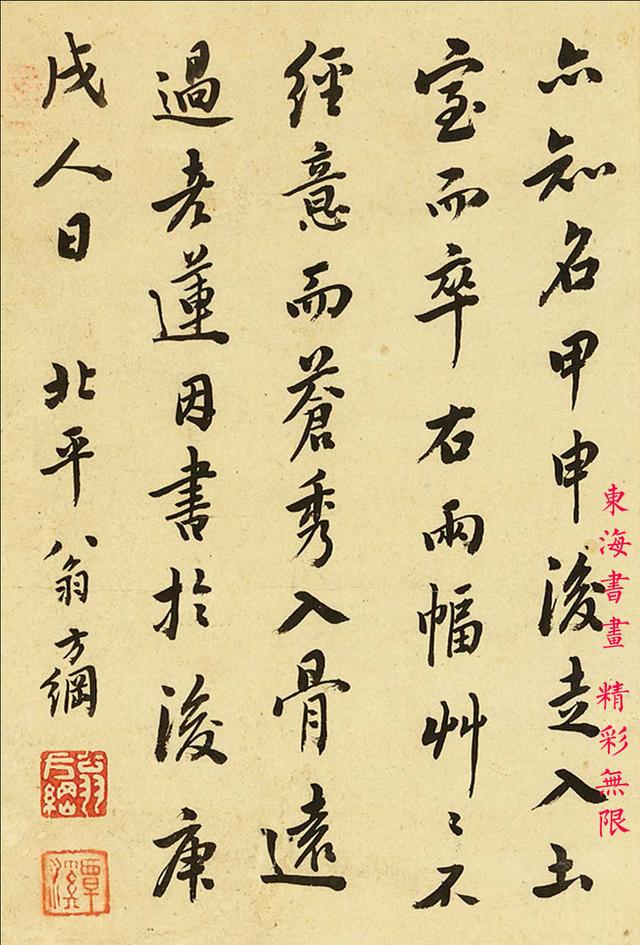 亦知名甲申後走入土
室而卒右兩幅艸〻不
經意而蒼秀入骨遠
過老蓮因書於後庚
戌人日 北平翁方綱
翁方綱
覃溪
東海書畫 精彩無限